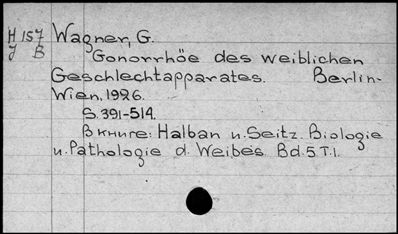 H 157 Wagner, G.
J B Gonorrhöe des weiblichen
Geschlechtapparates. Berlin-
Wien, 1926.
S. 391-514.
В книге: Halban u. Seitz. Biologie
u. Pathologie d. Weibes. Bd. 5. T. 1.